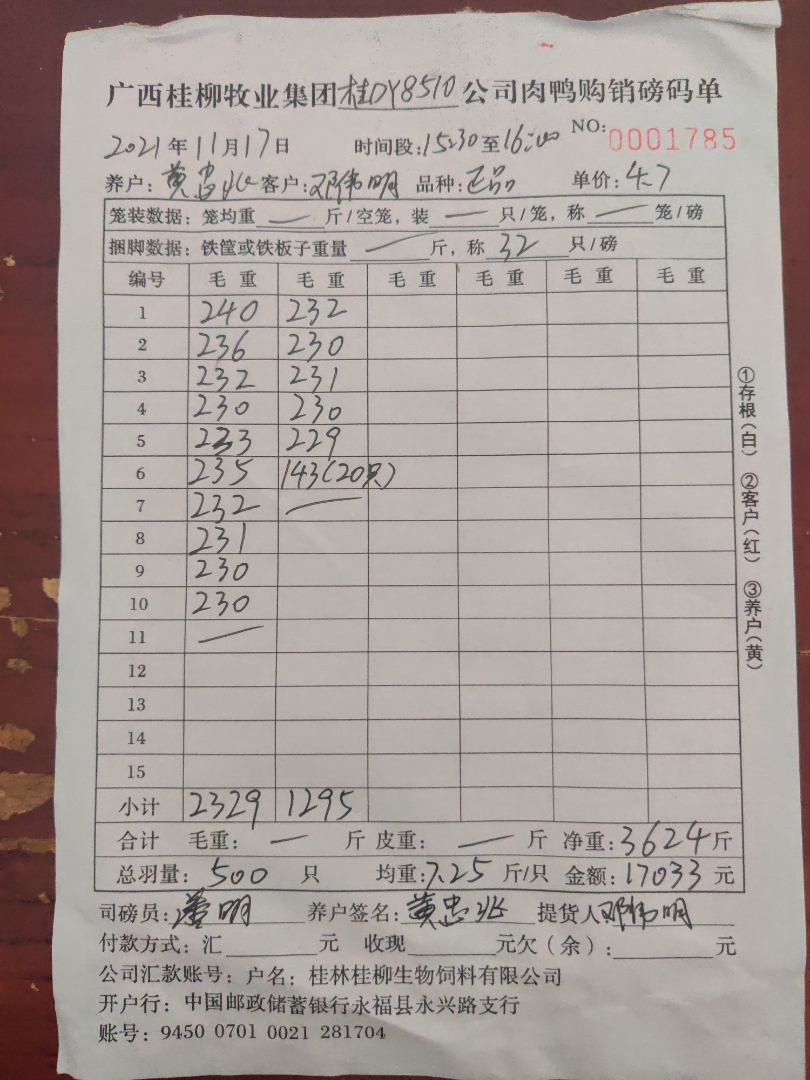 广西桂柳牧业集团桂DY8510公司肉鸭购销磅码单
2021年11月17日 时间段:15:30至16:00 NO:0001785
养户:黄忠兆 客户:邓伟明 品种:正品 单价:4.7
笼装数据:笼均重 — 斤/空笼,装 — 只/笼,称 — 笼/磅
捆脚数据:铁筐或铁板子重量 — 斤,称 32 只/磅
编号 毛重 毛重 毛重 毛重 毛重 毛重
1 240 232
2 236 230
3 232 231
4 230 230
5 233 229
6 235 143(20只)
7 232 —
8 231
9 230
10 230
11 —
12
13
14
15
小计 2329 1295
合计 毛重: — 斤 皮重: — 斤 净重:3624斤
总羽量:500 只 均重:7.25 斤/只 金额:17033 元
司磅员: 明 养户签名:黄忠兆 提货人邓伟明
付款方式:汇 元 收现 元欠(余): 元
公司汇款账号:户名:桂林桂柳生物饲料有限公司
开户行:中国邮政储蓄银行永福县永兴路支行
账号:9450 0701 0021 281704
①存根(白) ②客户(红) ③养户(黄)